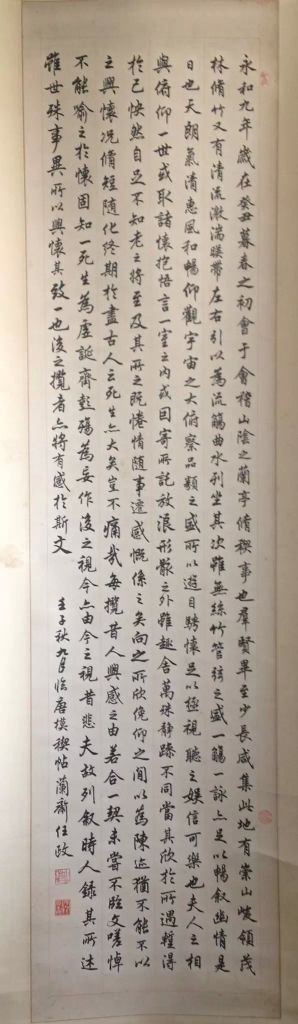 永和九年歲在癸丑暮春之初會于會稽山陰之蘭亭脩稧事也羣賢畢至少長咸集此地有崇山峻領茂
林脩竹又有清流激湍暎帶左右引以為流觴曲水列坐其次雖無絲竹管弦之盛一觴一詠亦足以暢敘幽情是
日也天朗氣清惠風和暢仰觀宇宙之大俯察品類之盛所以遊目騁懷足以極視聽之娛信可樂也夫人之相
與俯仰一世或取諸懷抱悟言一室之內或因寄所託放浪形骸之外雖趣舍萬殊靜躁不同當其欣於所遇蹔得
於己怏然自足不知老之將至及其所之既惓情隨事遷感慨係之矣向之所欣俛仰之間以為陳迹猶不能不以
之興懷況脩短隨化終期於盡古人云死生亦大矣豈不痛哉每攬昔人興感之由若合一契未嘗不臨文嗟悼
不能喻之於懷固知一死生為虛誕齊彭殤為妄作後之視今亦由今之視昔悲夫故列敘時人錄其所述
雖世殊事異所以興懷其致一也後之攬者亦將有感於斯文
壬子秋九月臨唐模稧帖蘭齋任政